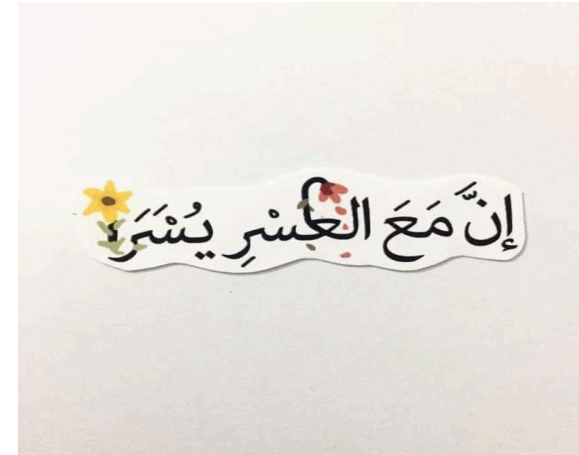 إِنَّ مَعَ العُسْرِ يُسْرَا